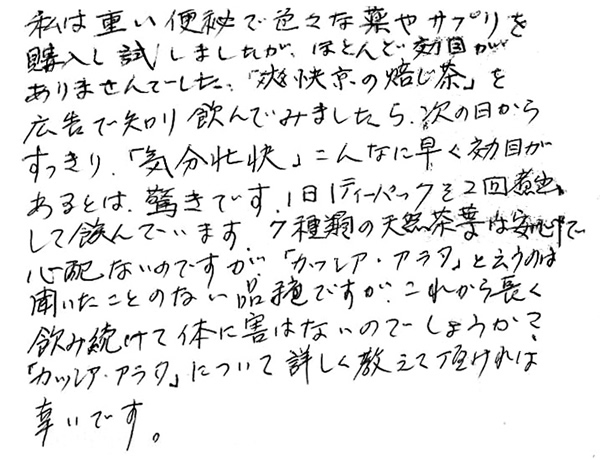 私は重い便秘で色々な薬やサプリを
購入し試しましたが、ほとんど効目が
ありませんでした。「爽快京の焙じ茶」を
広告で知り飲んでみましたら、次の日から
すっきり、「気分壮快」こんなに早く効目が
あるとは、驚きです。1日1ティーパックを2回煮出
して飲んでいます。7種類の天然茶葉は安心で
心配ないのですが「カッシア・アラタ」と云うのは
聞いたことのない品種ですが、これから長く
飲み続けて体に害はないのでしょうか？
「カッシア・アラタ」について詳しく教えて頂ければ
幸いです。